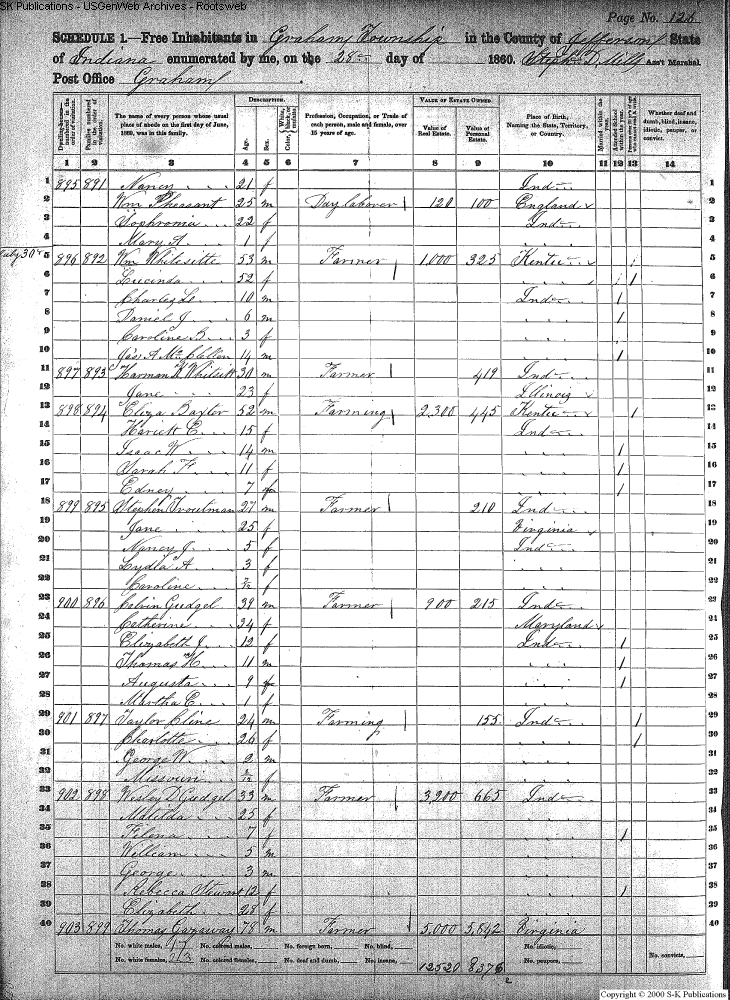 SK Publications - USGenWeb Archives - Rootsweb
Page No. 126
SCHEDULE 1.—Free Inhabitants in Graham Township in the County of Jefferson State
of Indiana enumerated by me, on the 28 day of 1860. Ass't Marshal.
Post Office Graham
DESCRIPTION. VALUE OF ESTATE OWNED.
Dwelling-houses numbered in the order of visitation.
Families numbered in the order of visitation.
The name of every person whose usual place of abode on the first day of June, 1860, was in this family.
Age. Sex. Color,
Profession, Occupation, or Trade of each person, male and female, over 15 years of age.
Value of Real Estate. Value of Personal Estate.
Place of Birth, Naming the State, Territory, or Country.
Married within the year. Attended School within the year.
Whether deaf and dumb, blind, insane, idiotic, pauper, or convict.
1 2 3 4 5 6 7 8 9 10 11 12 13 14
1 895 891 Nancy 21 f Ind 1
2 Wm Pheasant 25 m Day laborer 120 100 England 2
3 Sophronia 22 f Ind 3
4 Mary A. 1 f 4
5 896 892 Wm Whitesitte 53 m Farmer 1,000 325 Kentuc 5
6 Lucinda 52 f 1 6
7 Charley L. 10 m Ind 1 7
8 Daniel J. 6 m 1 8
9 Caroline B. 3 f 9
10 Jas A Mc Clellan 14 m 1 10
11 897 893 Harman H Whitsitt 30 m Farmer 419 Ind 11
12 Jane 23 f Illinois 12
13 898 894 Eliza Baxter 52 m Farming 2,300 445 Kentuc 1 13
14 Hariett E. 15 f Ind 14
15 Isaac W. 14 m 1 15
16 Sarah F. 11 f 1 16
17 Edney 7 1 17
18 899 895 Stephen Troutman 27 m Farmer 210 Ind 18
19 Jane 25 f Virginia 19
20 Nancy J. 5 f Ind 20
21 Lydia A 3 f 21
22 Caroline f 22
23 900 896 Calvin Gudgel 39 m Farmer 900 215 Ind 23
24 Catherine 34 f Maryland 24
25 Elizabeth J. 12 f Ind 1 25
26 Thomas H. 11 m 1 26
27 Augusta 9 1 27
28 Martha E. 1 f 28
29 901 897 Taylor Cline 24 m Farming 155 Ind 1 29
30 Charlotte 26 f 1 30
31 George W. 2 m 31
32 Missouri f 32
33 902 898 Wesley D Gudgel 33 m Farmer 3,200 665 Ind 33
34 Matilda 25 f 34
35 Filena 7 f 1 35
36 William 5 m 36
37 George 3 m 37
38 Rebecca Stewart 12 f 1 38
Elizabeth 28 f
40 903 899 Thomas Gassaway 78 m Farmer 5,000 5,842 Virginia 40
No. white males, 17 No. colored males, No. foreign born, No. blind, No. idiotic,
No. white females, 23 No. colored females, No. deaf and dumb, No. insane, 12520 8376 No. paupers, No. convicts,
Copyright © 2000 S-K Publications